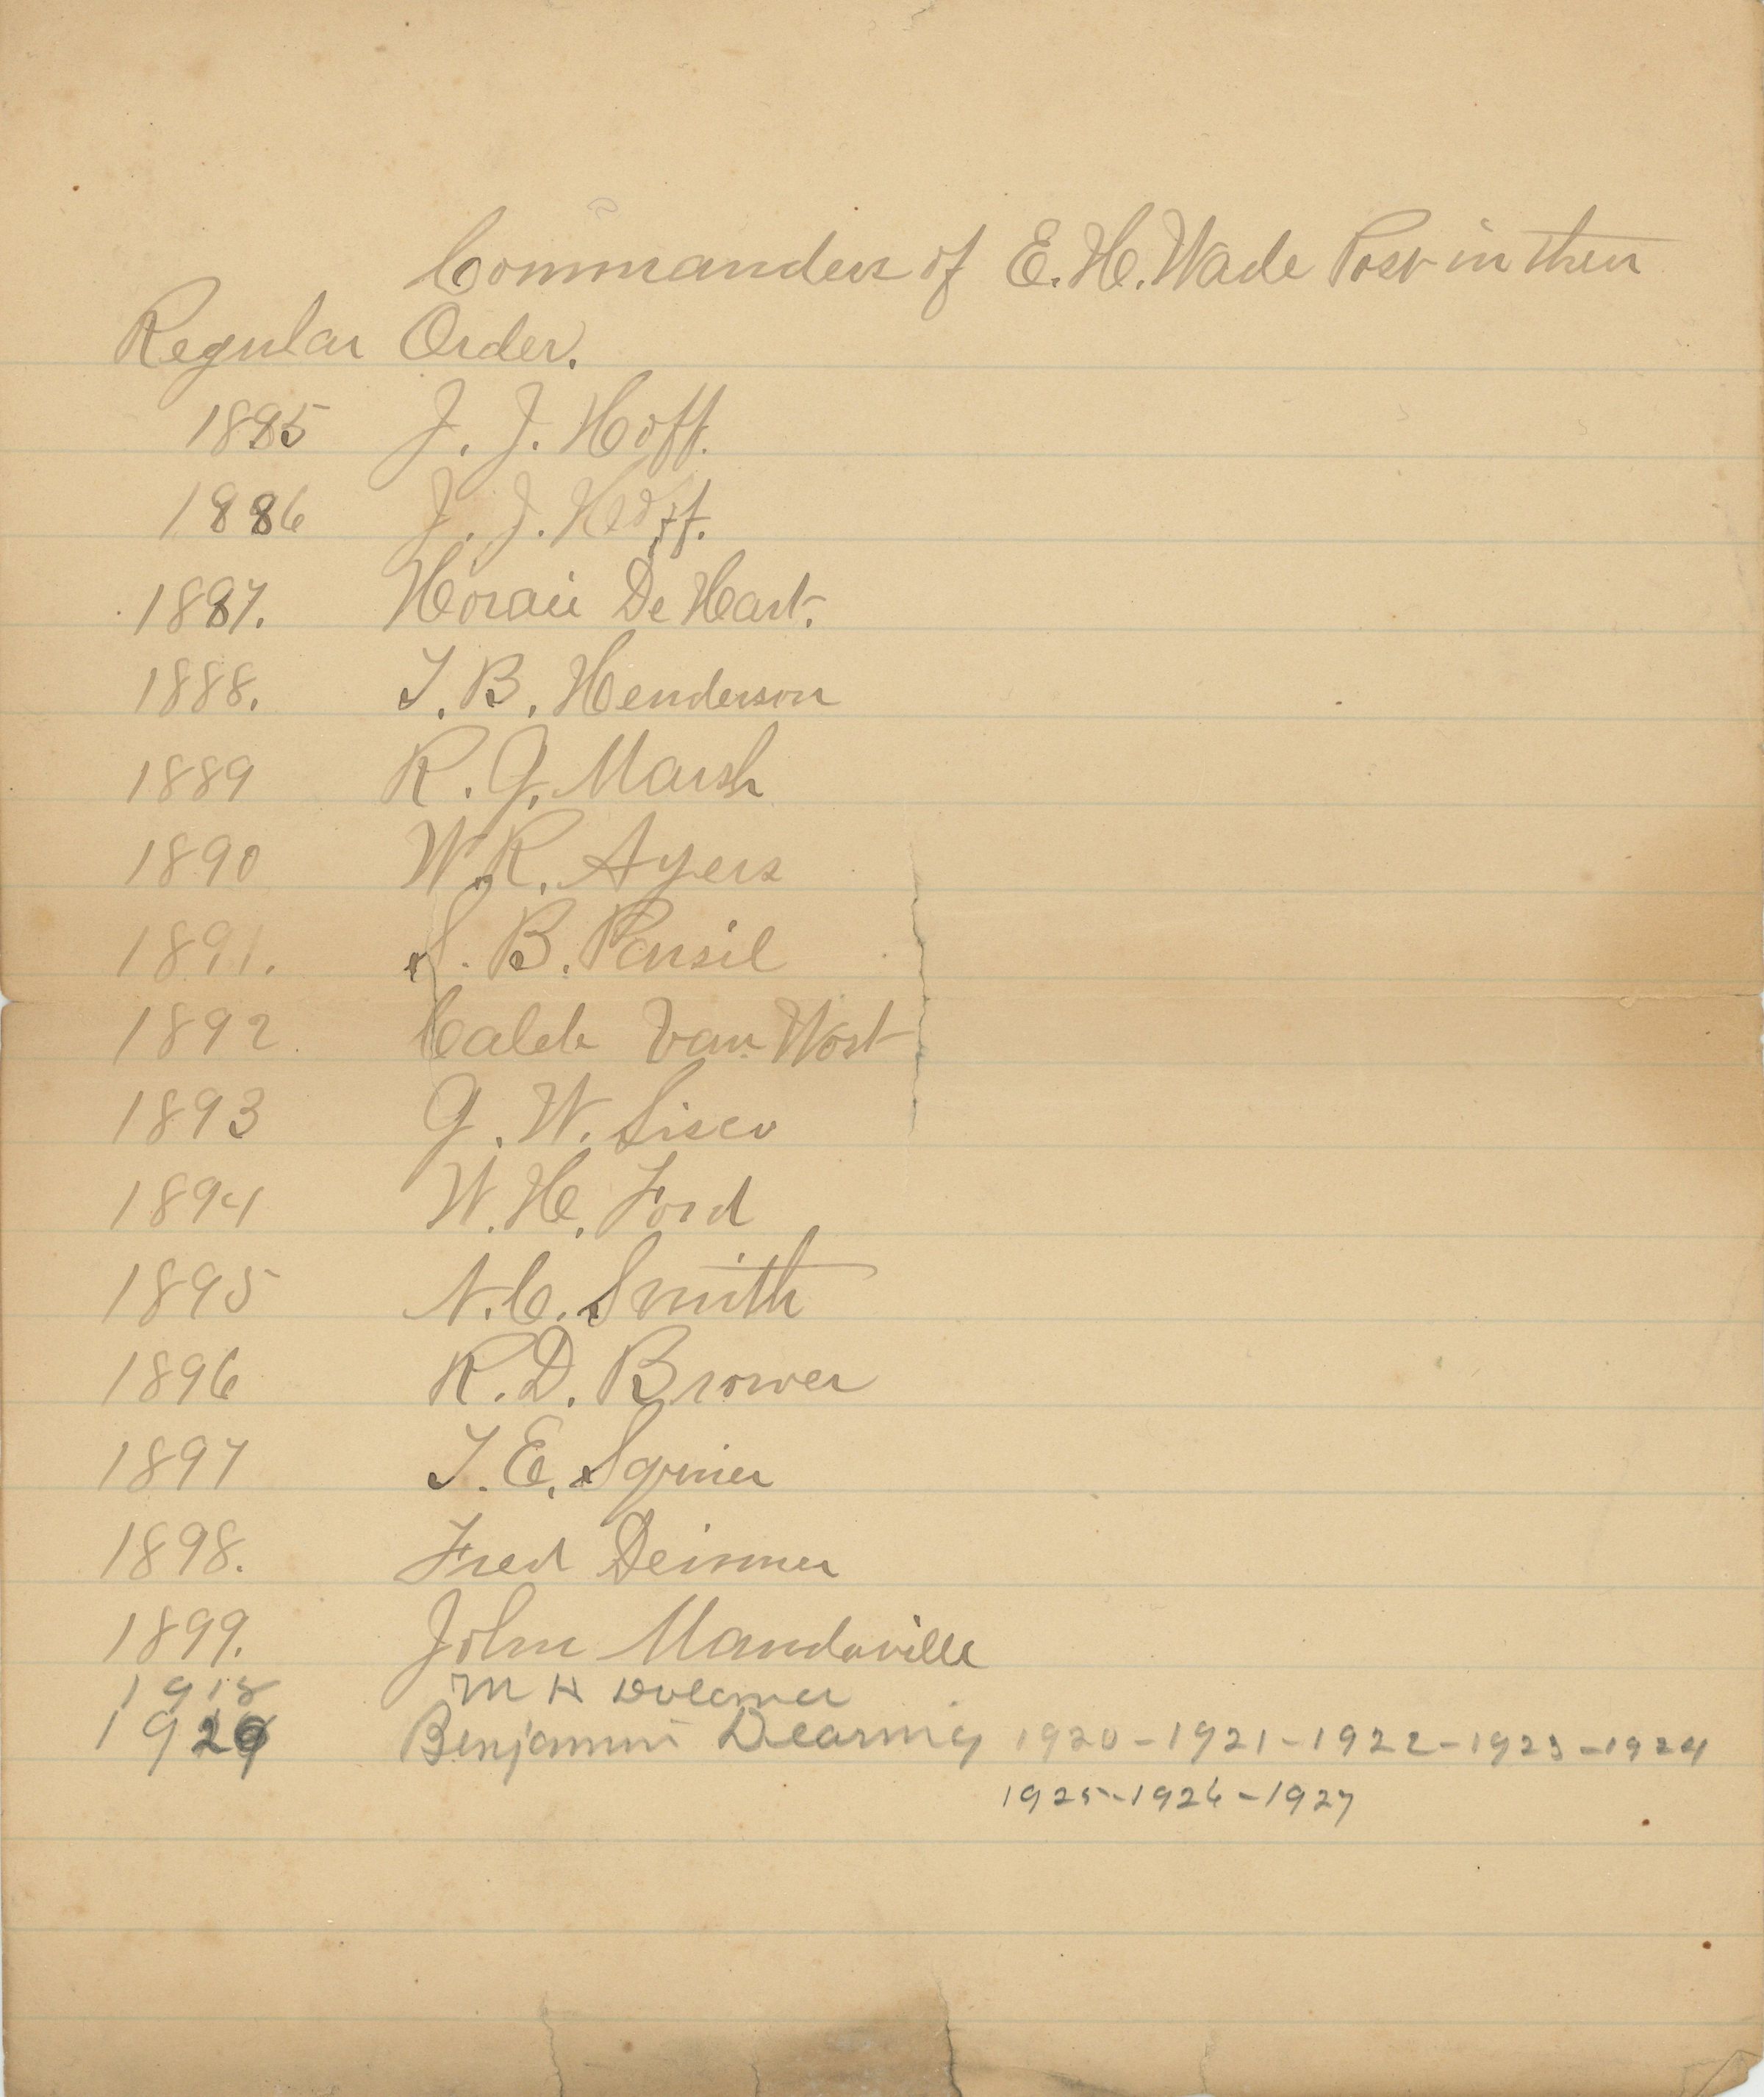 Commanders of E. H. Wade Post in their
Regular Order.
1885 J. J. Hoff.
1886 J. J. Hoff.
1887. Horace De Hart.
1888. T. B. Henderson
1889 R. G. Marsh
1890 W. R. Ayers
1891. S. B. Pensil
1892 Caleb Van Wort
1893 G. W. Sisco
1894 W. H. Ford
1895 N. C. Smith
1896 R. D. Brower
1897 T. E. Squier
1898. Fred Deimer
1899. John Mandaville
1918 M H
Benjamin Dearing 1920-1921-1922-1923-1924
1925-1926-1927